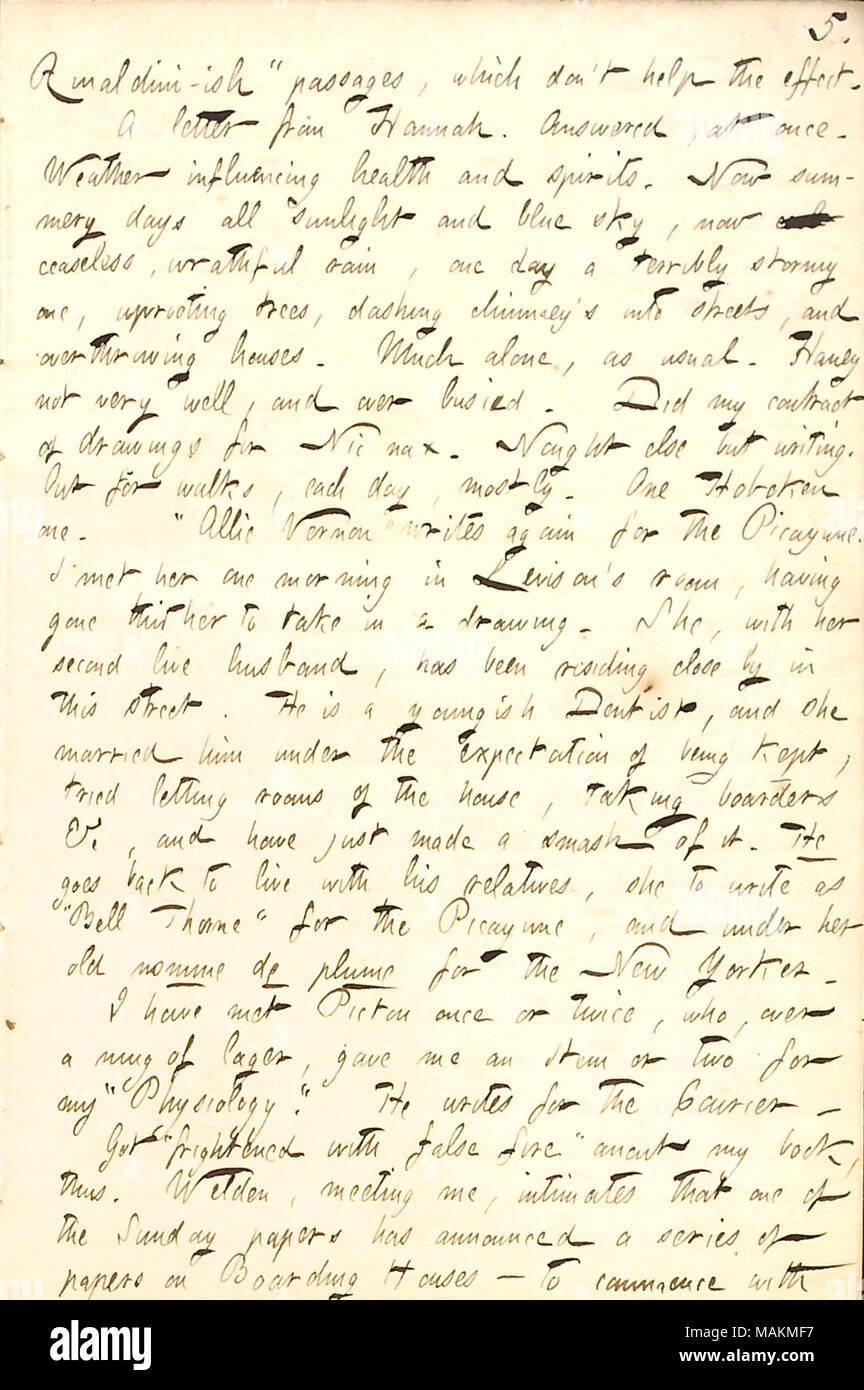 5.
Rinaldini-ish" passages, which don't help the effect.
A letter from Hannah. Answered, at once.
Weather influencing health and spirits. Now sum-
mery days all sunlight and blue sky, now
ceaseless, wrathful rain, one day a terribly stormy
one, uprooting trees, dashing chimney's into streets, and
overthrowing houses. Much alone, as usual. Haney
not very well, and over busied. Did my contract
of drawings for Nic nax. Nought else but writing.
Out for walks, each day, mostly. One Hoboken
one. "Allie Vernon" writes again for the Picayune.
I met her one morning in Levison's room, having
gone thither to take in a drawing. She, with her
second live husband, has been residing close by in
this street. He is a youngish Dentist, and she
married him under the expectation of being kept,
tried letting rooms of the house, taking boarders
&c., and have just made a smash of it. He
goes back to live with his relatives, she to write as
"Bell Thorne" for the Picayune, and under her
old nomme de plume for the New Yorker.
I have met Picton once or twice, who, over
a mug of lager, gave me an item or two for
my "Physiology." He writes for the Courier.
Got "frightened with false fire" anent my book,
thus. Welden, meeting me, intimates that one of
the Sunday papers has announced a series of
papers on Boarding Houses — to commence with
alamy
Image ID: MAKMF7
www.alamy.com